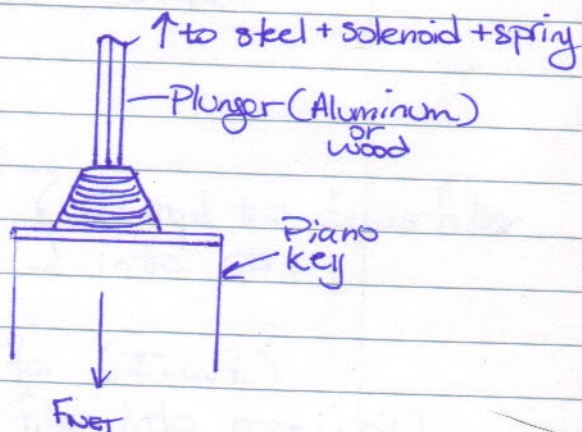 ↑ to steel + solenoid + spring
Plunger (Aluminum)
or
wood
Piano
key
FNET